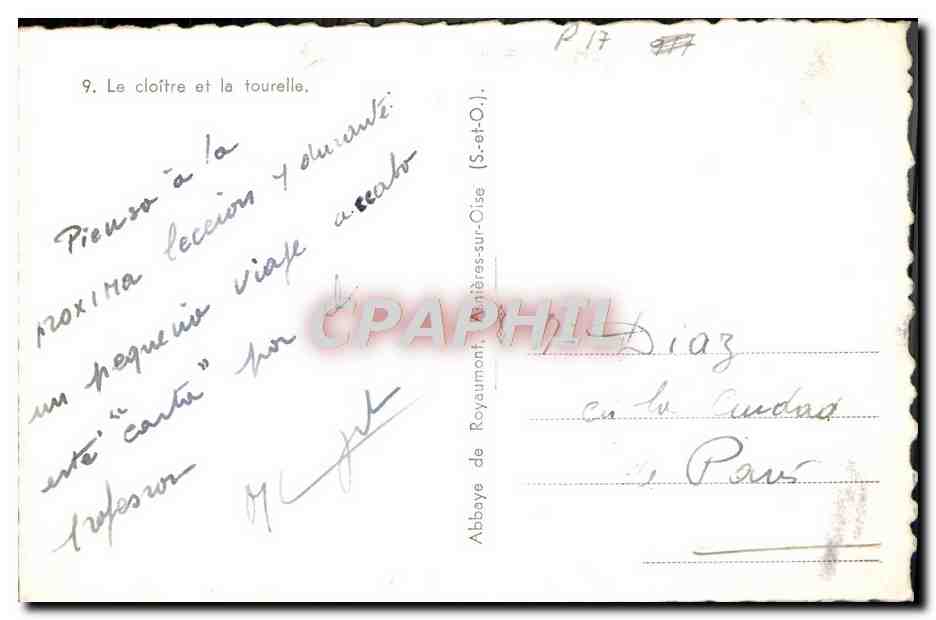 P 17
9. Le cloître et la tourelle.
Pienso à la
proxima leccion y durante
un pequenio viaje accabo
esté "carta" por el
Professor
Abbaye de Royaumont, Asnières-sur-Oise (S.-et-O.).
CPAPHIL
Diaz
en la Ciudad
de Paris